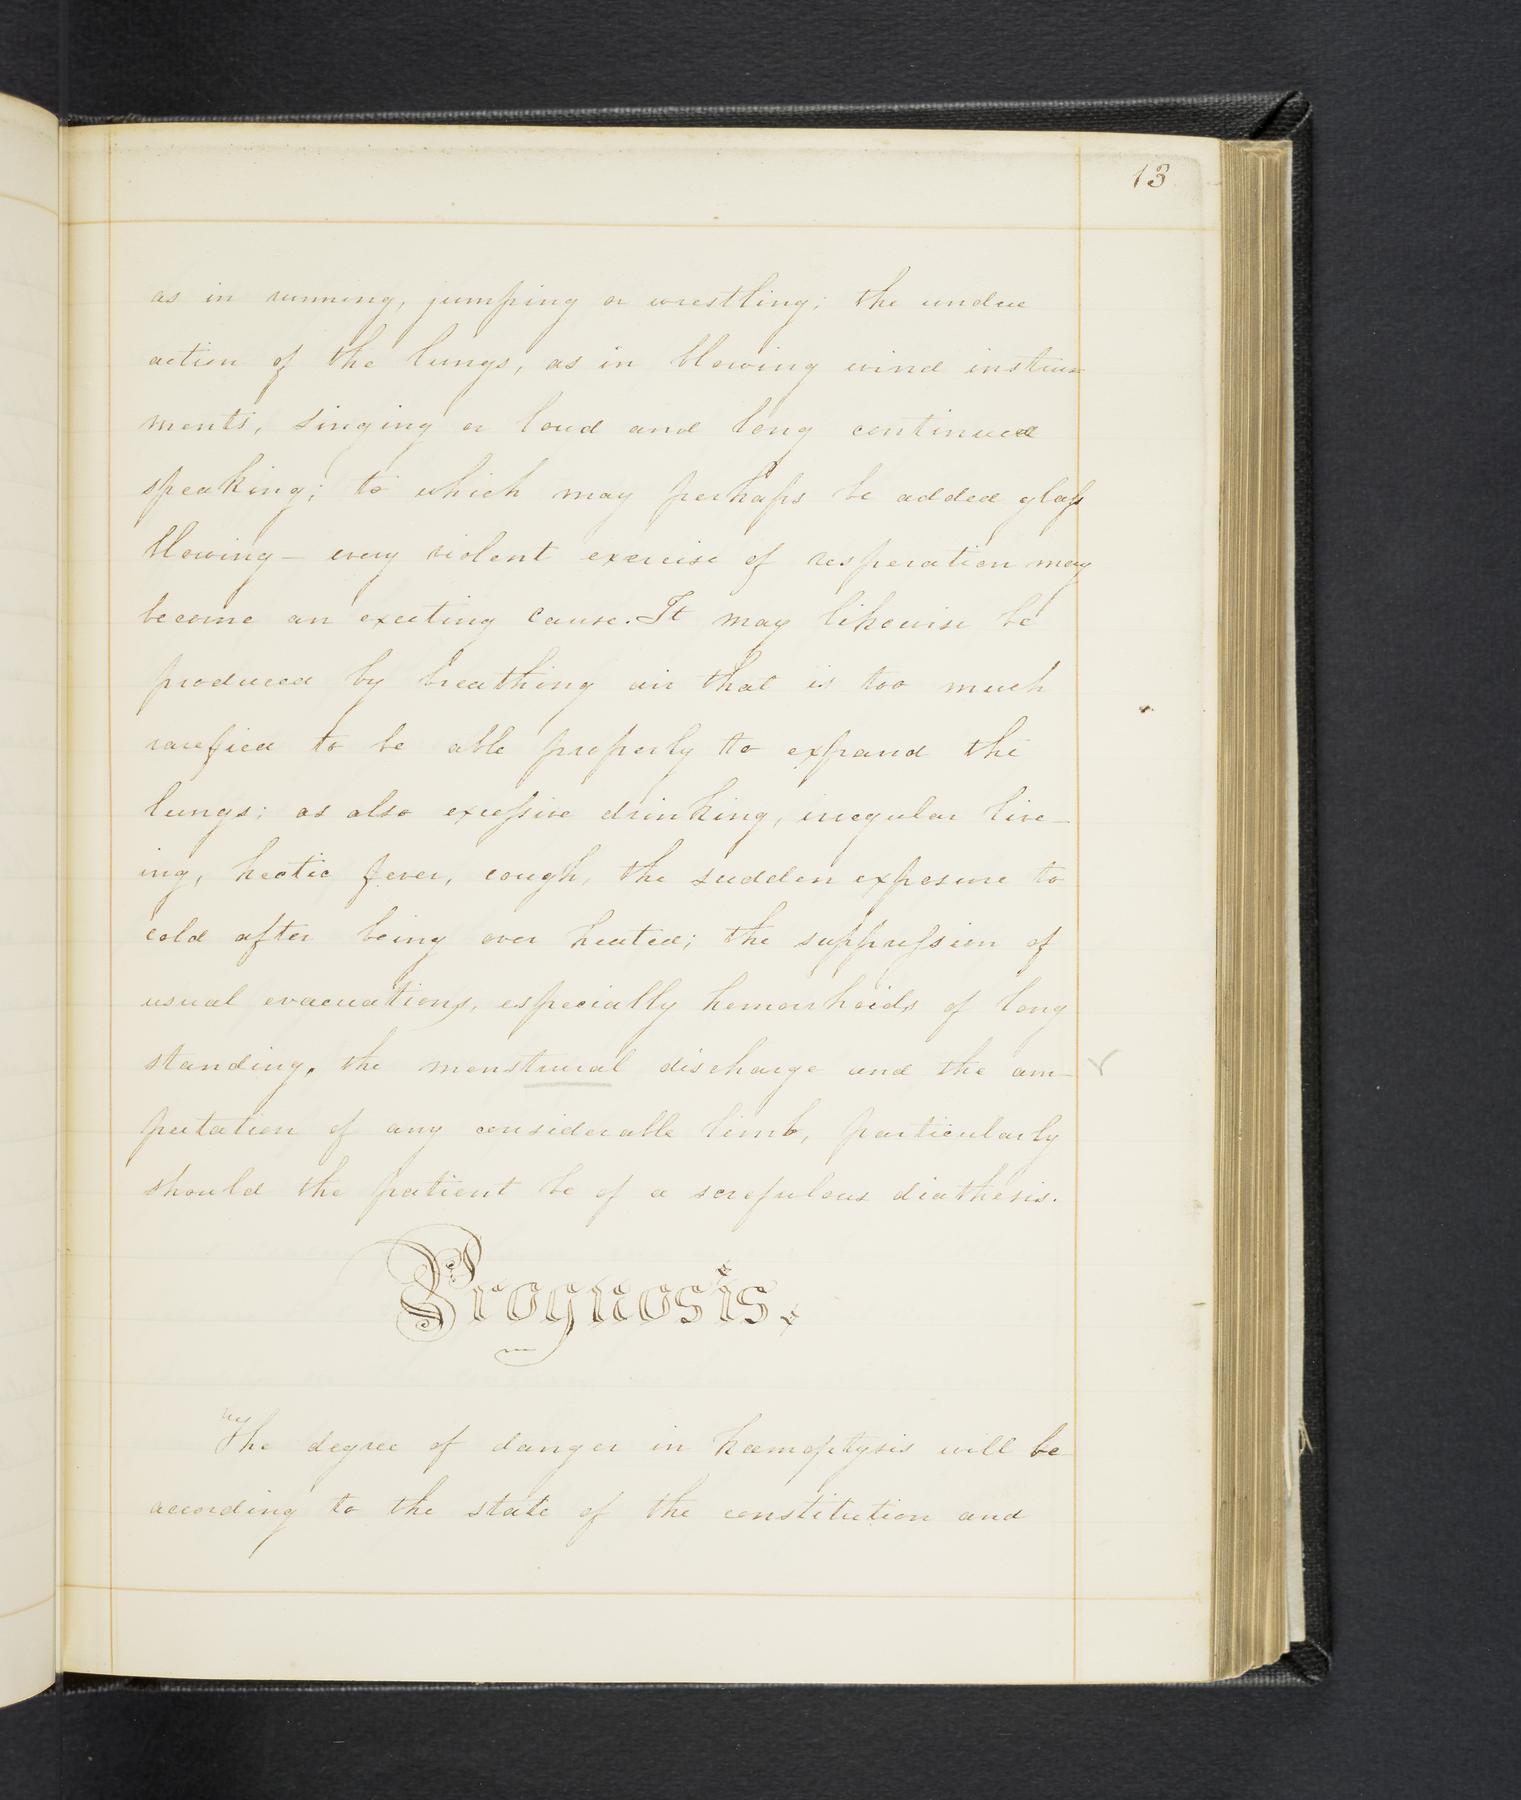 13
as in running, jumping or wrestling; the undue
action of the lungs, as in blowing wind instru=
ments, singing or loud and long continued
speaking; to which may perhaps be added glaſs
blowing — every violent exercise of resperation may
become an exciting cause. It may likewise be
produced by breathing air that is too much
rarefied to be able properly to expand the
lungs; as also exceſsive drinking, irregular live-
ing, hectic fever, cough, the sudden exposure to
cold after being over heated; the suppreſsion of
usual evacuations, especially hemorrhoids of long
standing, the menstrural discharge and the am-
putation of any considerable limb, particularly
should the patient be of a scrofulous diathesis.
Prognosis.
The degree of danger in hæmoptysis will be
according to the state of the constitution and